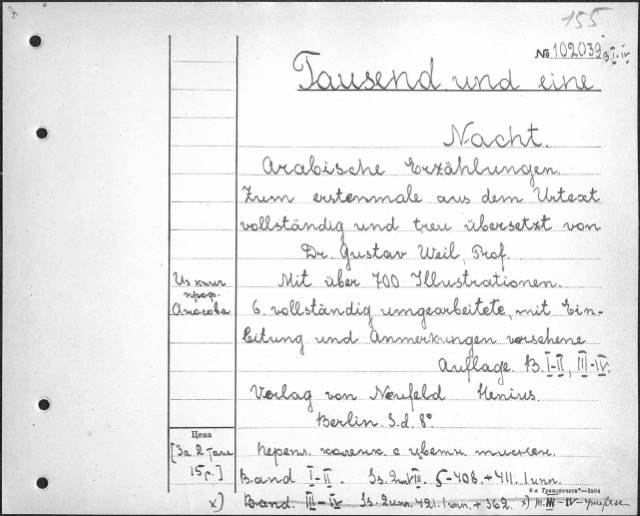 155
№ 102039 B I-IV
Tausend und eine
Nacht.
Arabische Erzählungen.
Zum erstenmale aus dem Urtext
vollständig und treu übersetzt von
Dr. Gustav Weil, Prof.
Mit über 700 Illustrationen.
Из книг
проф.
6. vollständig umgearbeitete, mit Ein-
leitung und Anmerkungen versehene
Auflage. B. I-II, III-IV.
Verlag von Neufeld Henius.
Berlin. S.d. 8°.
Цена
[За 2 тома
15 р.]
перепл. коленк. с цветн. тиснен.
Band I-II. Ss. 2 unn. VIII. 5-408. + 411. 1 unn.
x) Band. III-IV Ss. 2 unn. 421. 1 unn. + 362. x) т. III-IV-утерян